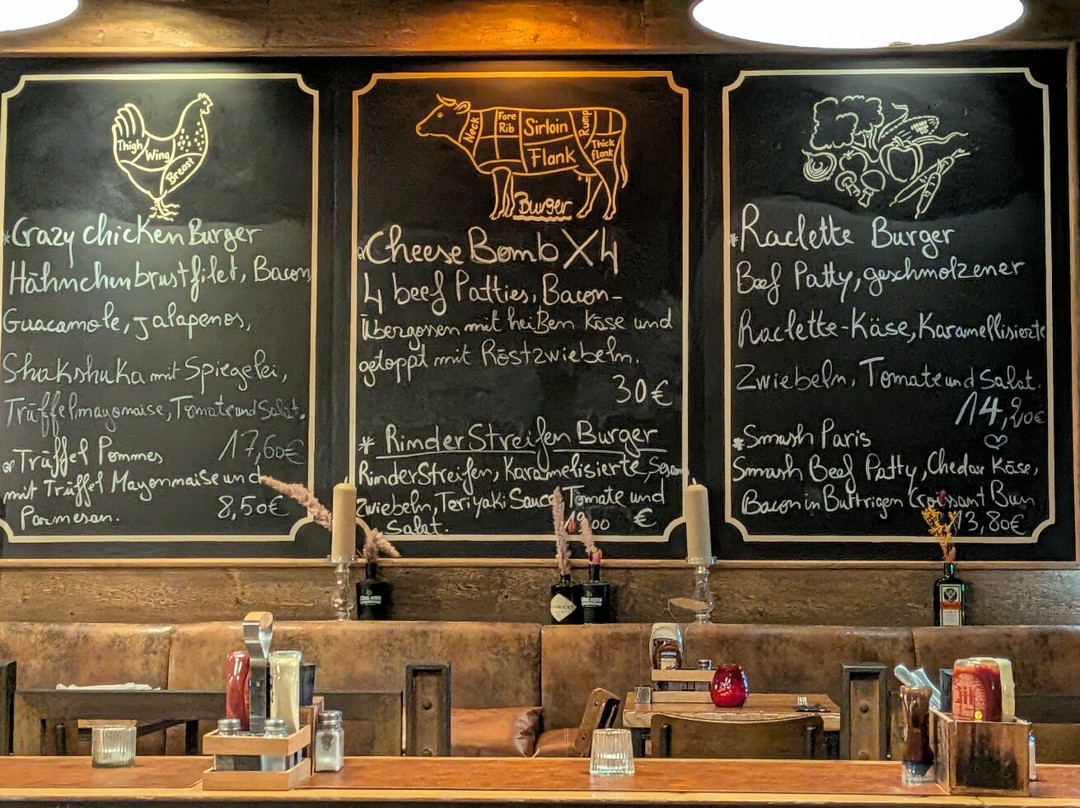 Thigh
Wing
Breast
*Crazy chicken Burger
Hähnchenbrustfilet, Bacon,
Guacamole, Jalapenos,
Shakshuka mit Spiegelei,
Trüffelmayonaise, Tomate und Salat.
17,60€
*Trüffel Pommes
mit Trüffel Mayonnaise und
8,50€
Parmesan.
Neck
Fore Rib
Sirloin
Rump
Flank
Thick flank
Burger
*Cheese Bomb X4
4 beef Patties, Bacon-
Übergossen mit heißen Käse und
getoppt mit Röstzwiebeln.
30€
* Rinder Streifen Burger
Rinder Streifen, Karamelisierte, Sesam
zwiebeln, Teriyaki Sauce Tomate und
Salat. €
*Raclette Burger
Beef Patty, geschmolzener
Raclette-Käse, Karamellisierte
Zwiebeln, Tomate und Salat.
14,20€
*Smash Paris
Smash Beef Patty, Chedar Käse,
Bacon in Buttrigen Croissant Bun
13,80€